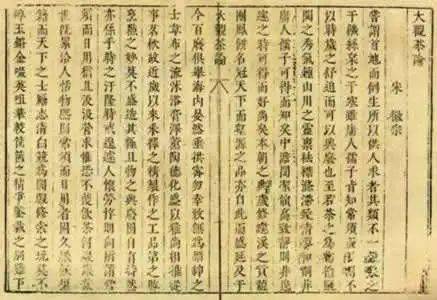 大觀茶論
宋 徽宗
嘗謂首地而倒生所以供人求者其類不一穀粟之
於饑絲枲之於寒雖庸人孺子皆知常須而日用不
以時歲之舒迫而可以興廢也至若茶之為物擅甌
閩之秀氣鍾山川之靈稟祛襟滌滯致清導和則非
庸人孺子可得而知矣中澹間潔韻高致靜則非遑
遽之時可得而好尚矣本朝之興歲修建溪之貢龍
團鳳餅名冠天下而壑源之品亦自此而盛延及于
大觀茶論
今百廢俱舉海內晏然垂拱密勿幸致無為縉紳之
士韋布之流沐浴膏澤薰陶德化盛以雅尚相推從
事茗飲故近歲以來采擇之精製作之工品第之勝
烹點之妙莫不盛造其極且物之興廢固自有時然
亦係乎時之汙隆時或遑遽人懷勞悴則向所謂常
須而日用猶且汲汲營求惟恐不獲飲茶何暇議哉
世既累洽人恬物熙則常須而日用者固久厭飫狼
籍而天下之士勵志清白競為閒暇修索之玩莫不
碎玉鏘金啜英咀華較篋笥之精爭鑒裁之別雖下